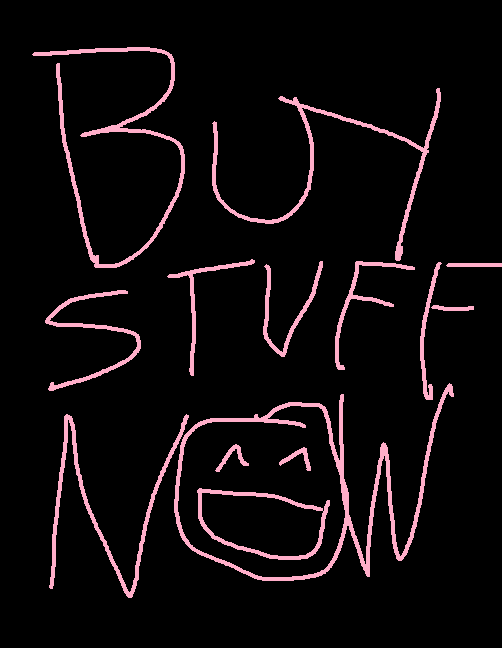 BUY
STUFF
NOW